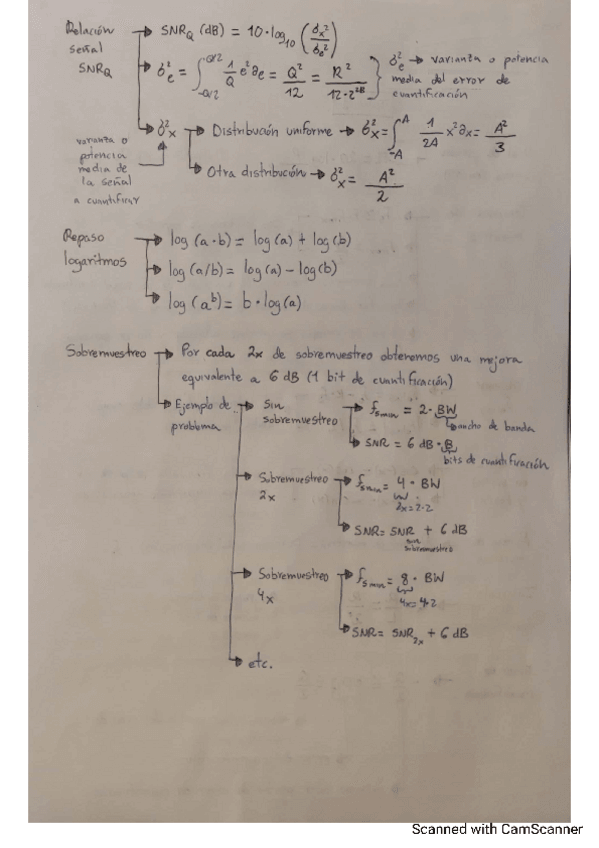 Relación señal SNR_Q → SNR_Q (dB) = 10·log₁₀ (σ_x²/σ_e²)
→ σ_e² = ∫_{-Q/2}^{Q/2} 1/Q e² ∂e = Q²/12 = R²/(12·2^{2B}) } σ_e² → varianza o potencia media del error de cuantificación
→ σ_x² → Distribución uniforme → σ_x² = ∫_{-A}^{A} 1/2A x² ∂x = A²/3
varianza o potencia media de la señal a cuantificar
→ Otra distribución → σ_x² = A²/2
Repaso logaritmos → log (a·b) = log (a) + log (b)
→ log (a/b) = log (a) - log (b)
→ log (a^b) = b · log (a)
Sobremuestreo → Por cada 2x de sobremuestreo obtenemos una mejora
equivalente a 6 dB (1 bit de cuantificación)
→ Ejemplo de problema → Sin sobremuestreo → f_smin = 2 · BW
ancho de banda
→ SNR = 6 dB · B
bits de cuantificación
→ Sobremuestreo 2x → f_smin = 4 · BW
2x = 2·2
→ SNR = SNR sin sobremuestreo + 6 dB
→ Sobremuestreo 4x → f_smin = 8 · BW
4x = 4·2
→ SNR = SNR_2x + 6 dB
→ etc.
Scanned with CamScanner